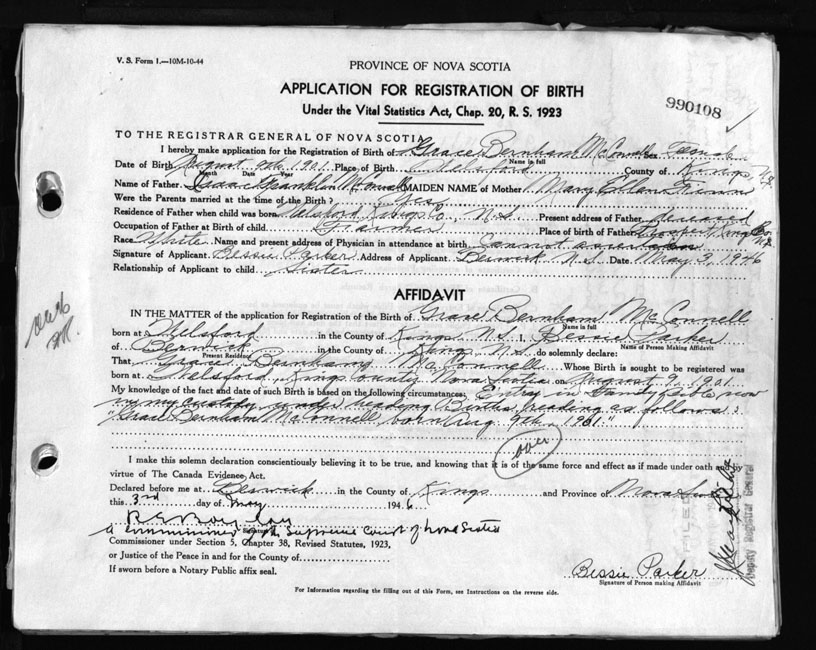 V. S. Form 1.—10M-10-44
PROVINCE OF NOVA SCOTIA
APPLICATION FOR REGISTRATION OF BIRTH
Under the Vital Statistics Act, Chap. 20, R. S. 1923
990108
TO THE REGISTRAR GENERAL OF NOVA SCOTIA
I hereby make application for the Registration of Birth of Grace Bernham McConnell Sex Female
Name in full
Date of Birth August 9th 1901 Place of Birth Melsford County of Kings, N.S.
Month Date Year
Name of Father Isaac Franklin McConnell MAIDEN NAME of Mother Mary Ellen
Were the Parents married at the time of the Birth? Yes
Residence of Father when child was born Melsford Kings Co., N.S. Present address of Father deceased
Occupation of Father at Birth of child Farmer Place of birth of Father Prospect, Kings Co. N.S.
Race White Name and present address of Physician in attendance at birth Cannot ascertain
Signature of Applicant Bessie Parker Address of Applicant Berwick N.S. Date May 3, 1946
Relationship of Applicant to child Sister
AFFIDAVIT
IN THE MATTER of the application for Registration of the Birth of Grace Bernham McConnell
Name in full
born at Melsford in the County of Kings N.S. I, Bessie Parker
Name of Person Making Affidavit
of Berwick in the County of Kings N.S. do solemnly declare:
Present Residence
That Grace Bernham McConnell Whose Birth is sought to be registered was
born at Melsford, Kings County Nova Scotia on August 9, 1901
My knowledge of the fact and date of such Birth is based on the following circumstances; Entry in Family Bible now
in my custody under heading Births, reading as follows:
"Grace Bernham McConnell, born Aug 9th, 1901."
over
I make this solemn declaration conscientiously believing it to be true, and knowing that it is of the same force and effect as if made under oath and by
virtue of The Canada Evidence Act.
Declared before me at Berwick in the County of Kings and Province of Nova Scotia
this 3rd day of May 1946
Signature
a Commissioner of the Supreme Court of Nova Scotia
Commissioner under Section 5, Chapter 38, Revised Statutes, 1923,
or Justice of the Peace in and for the County of
If sworn before a Notary Public affix seal.
Bessie Parker
Signature of Person making Affidavit
Deputy Registrar General
For Information regarding the filling out of this Form, see Instructions on the reverse side.